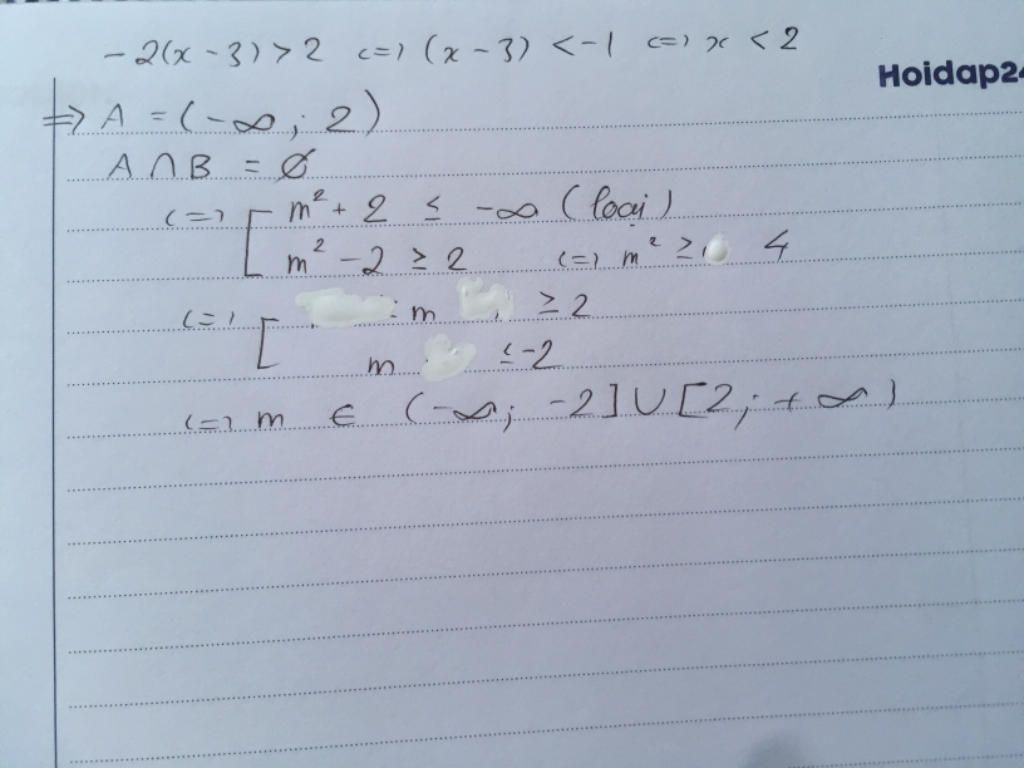 -2(x - 3) > 2 <=> (x - 3) < -1 <=> x < 2
Hoidap24
=> A = (-∞; 2)
A ∩ B = Ø
<=> [ m² + 2 ≤ -∞ (loại)
m² - 2 ≥ 2 <=> m² ≥ 4
<=> [ m ≥ 2
m ≤ -2
<=> m ∈ (-∞; -2] ∪ [2; +∞)